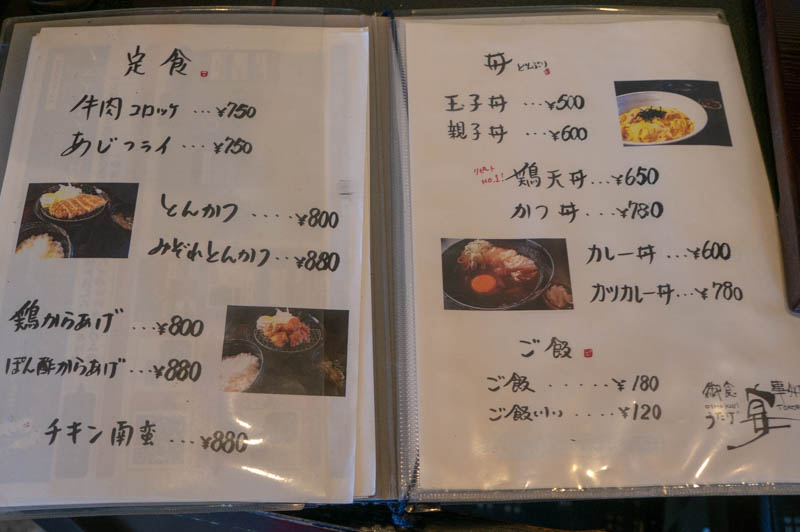 定食
牛肉コロッケ…¥750
あじフライ…¥750
とんかつ....¥800
みぞれとんかつ..¥880
鶏からあげ...¥800
ぽん酢からあげ...¥880
チキン南蛮...¥880
丼 どんぶり
玉子丼...¥500
親子丼...¥600
リピート
NO.1!
鶏天丼...¥650
かつ丼...¥780
カレー丼...¥600
カツカレー丼...¥780
ご飯
ご飯......¥180
ご飯(小)......¥120
御食
うた丁